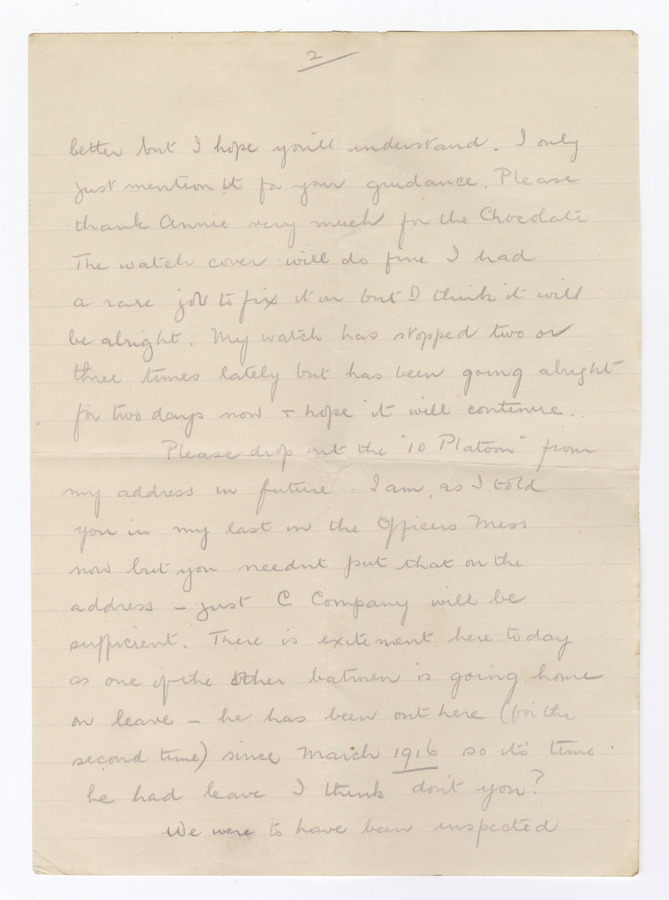 2
better but I hope you'll understand. I only
just mention it for your guidance. Please
thank Annie very much for the Chocolate
The watch cover will do fine I had
a rare job to fix it on but I think it will
be alright. My watch has stopped two or
three times lately but has been going alright
for two days now & hope it will continue.
Please drop out the "10 Platoon" from
my address in future. I am, as I told
you in my last in the Officers Mess
now but you needn't put that on the
address – just C Company will be
sufficient. There is excitement here today
as one of the other batmen is going home
on leave – he has been out here (for the
second time) since March 1916 so it's time
he had leave I think don't you?
We were to have been inspected